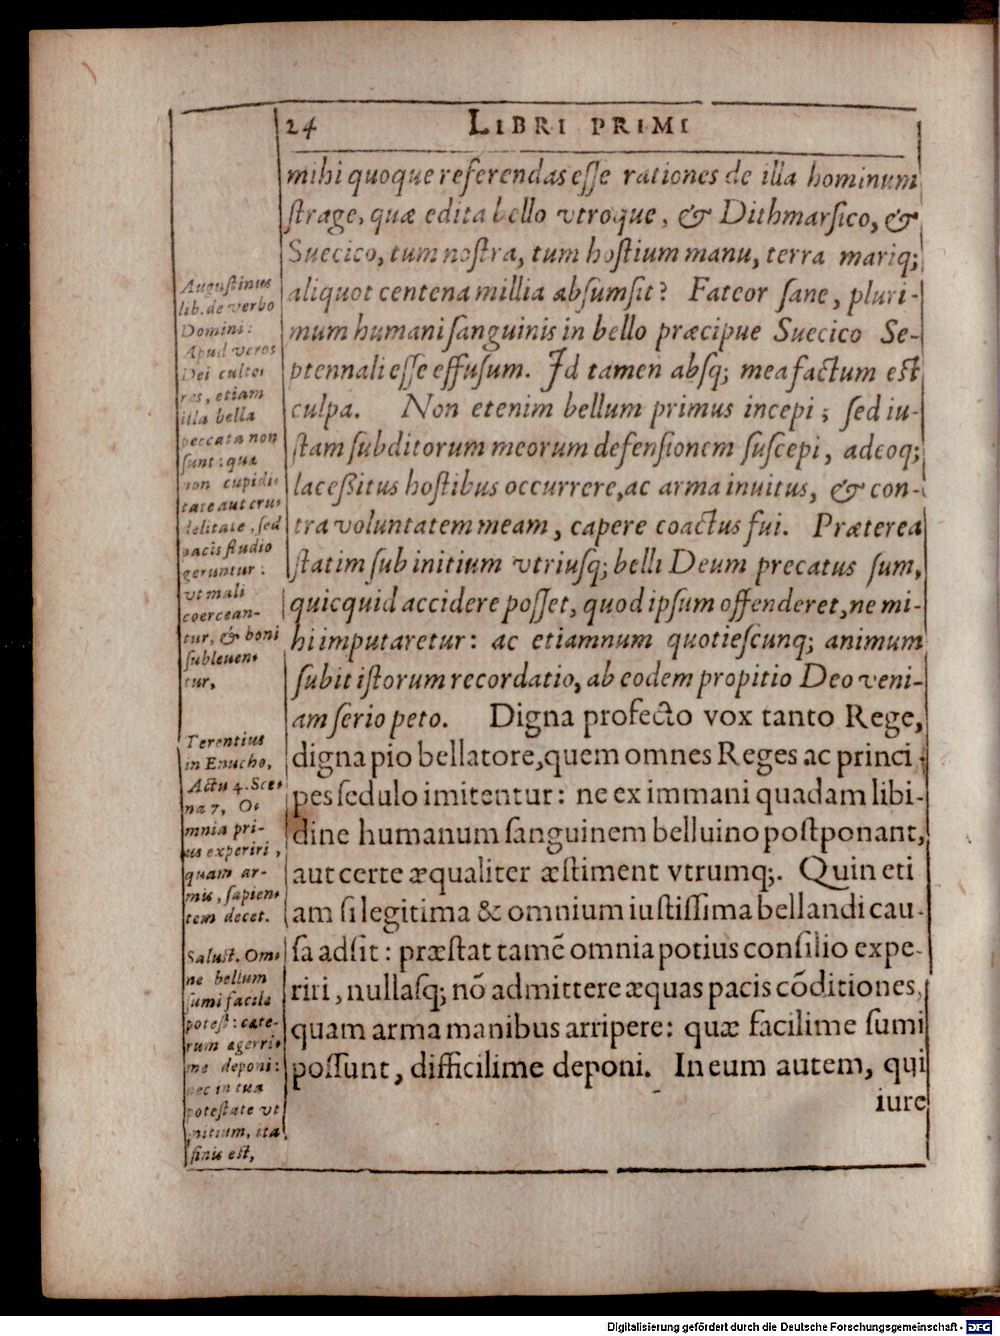 24 LIBRI PRIMI
mihi quoque referendas eſſe rationes de illa hominum
ſtrage, quæ edita bello vtroque, & Dithmarſico, &
Suecico, tum noſtra, tum hoſtium manu, terra mariq;
aliquot centena millia abſumſit? Fateor ſane, pluri-
mum humani ſanguinis in bello præcipue Suecico Se-
ptennali eſſe effuſum. Id tamen abſq; mea factum eſt
culpa. Non etenim bellum primus incepi; ſed iu-
ſtam ſubditorum meorum defenſionem ſuſcepi, adeoq;
laceßitus hoſtibus occurrere, ac arma inuitus, & con-
tra voluntatem meam, capere coactus fui. Præterea
ſtatim ſub initium vtriuſq; belli Deum precatus ſum,
quicquid accidere poſſet, quod ipſum offenderet, ne mi-
hi imputaretur: ac etiamnum quotieſcunq; animum
ſubit iſtorum recordatio, ab eodem propitio Deo veni-
am ſerio peto. Digna profecto vox tanto Rege,
digna pio bellatore, quem omnes Reges ac princi-
pes ſedulo imitentur: ne ex immani quadam libi-
dine humanum ſanguinem belluino poſtponant,
aut certe æqualiter æſtiment vtrumq;. Quin eti
am ſi legitima & omnium iuſtiſſima bellandi cau-
ſa adſit: præſtat tamē omnia potius conſilio expe-
riri, nullaſq; nō admittere æquas pacis cōditiones,
quam arma manibus arripere: quæ facilime ſumi
poſſunt, difficilime deponi. In eum autem, qui
iure
Auguſtinus
lib. de verbo
Domini:
Apud veros
Dei culto-
res, etiam
illa bella
peccata non
ſunt: quæ
non cupidi-
tate aut cru-
delitate, ſed
pacis ſtudio
geruntur:
vt mali
coercean-
tur, & boni
ſubleuen-
tur,
Terentius
in Enucho,
Actu 4. Sce-
na 7, O-
mnia pri-
us experiri,
quam ar-
mis, ſapien-
tem decet.
Saluſt. Om-
ne bellum
ſumi facile
poteſt: cæte-
rum ægerri-
me deponi:
nec in tua
poteſtate vt
initium, ita
finis eſt,
Digitalisierung gefördert durch die Deutsche Forschungsgemeinschaft - DFG